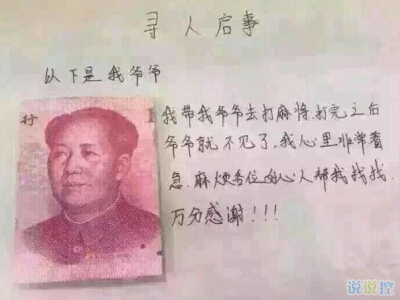 寻人启事
以下是我爷爷
行
我带我爷爷去打麻将,打完之后
爷爷就不见了,我心里非常着
急.麻烦各位好心人帮我找找.
万分感谢!!!
说说控